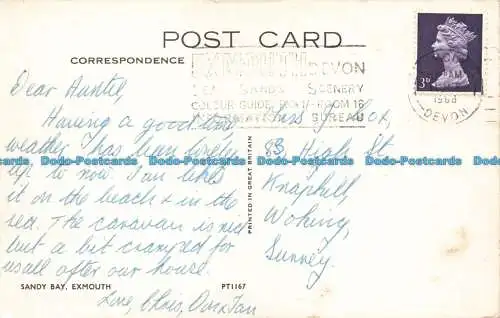 POST CARD
CORRESPONDENCE
EXMOUTH DEVON
SEA SANDS SCENERY
COLOUR GUIDE, FROM ROOM 16
INFORMATION BUREAU
3D
1968
DEVON
Dear Auntie,
Having a good time
weather has been lovely
up to now. Ian likes
it on the beach & in the
sea. The caravan is nice
but a bit cramped for
us all after our house.
Love, Chris, Don & Ian
Miss J. Cox,
83 High St
Knaphill,
Woking,
Surrey.
PRINTED IN GREAT BRITAIN
SANDY BAY, EXMOUTH
PT1167
Dodo-Postcards Dodo-Postcards Dodo-Postcards Dodo-Postcards